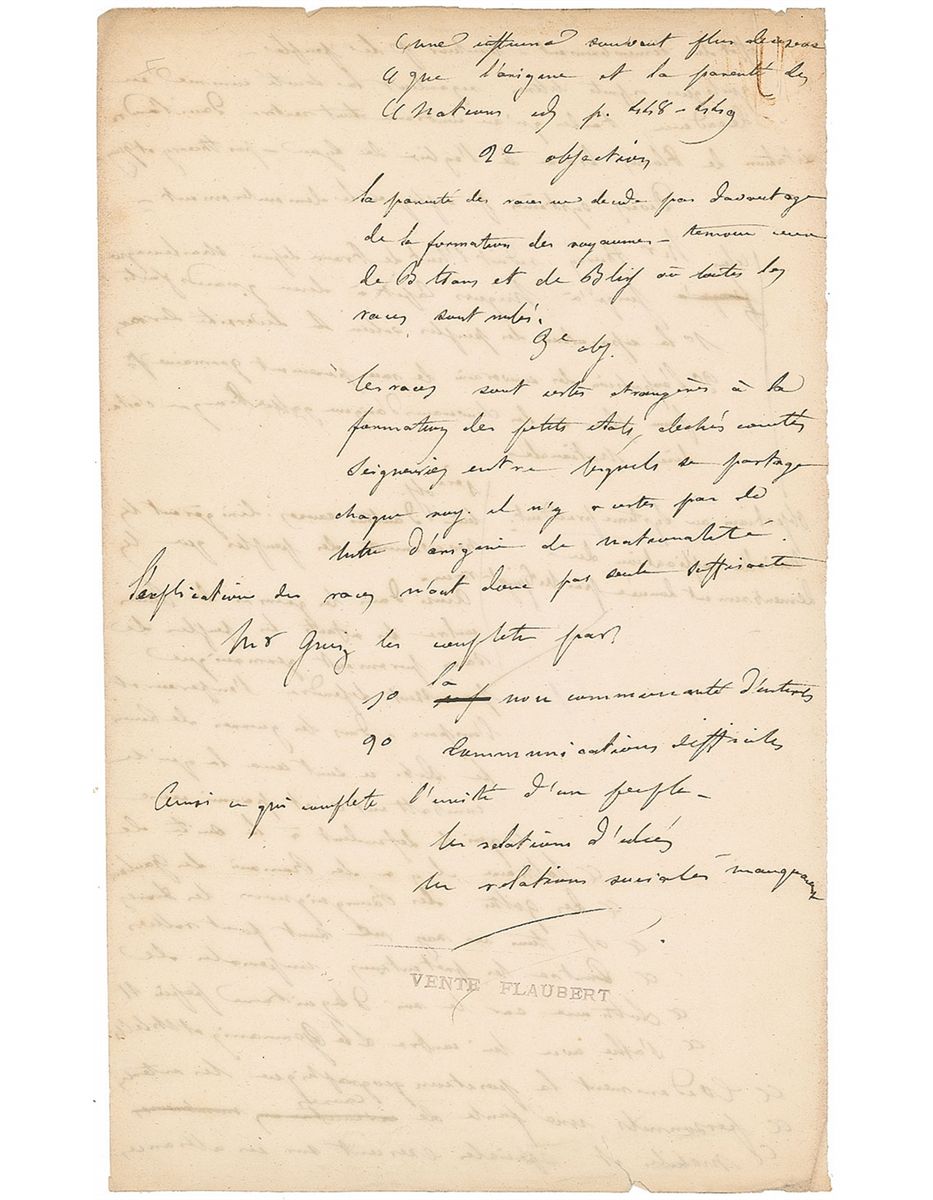 « une influence souvent plus décisive
« que l'origine et la parenté des
« nations p. 448-449
2e objection
la parenté des races ne decide pas davantage
de la formation des royaumes – temoin ceux
de et de où toutes les
races sont mêlés.
3e obj.
les races sont certes etrangères à la
formation des petits etats, duchés comtés
seigneuries entre lesquels se partage
chaque roy. il n'y a certes pas là
lutte d'origine de nationalité.
l'explication des races n'est donc pas seule suffisante
Mr Guiz les complete par
1o la non communauté d'interets
2o communications difficiles
Ainsi ce qui complete l'unité d'un peuple –
les relations d'idées
les relations sociales manquaient
VENTE FLAUBERT